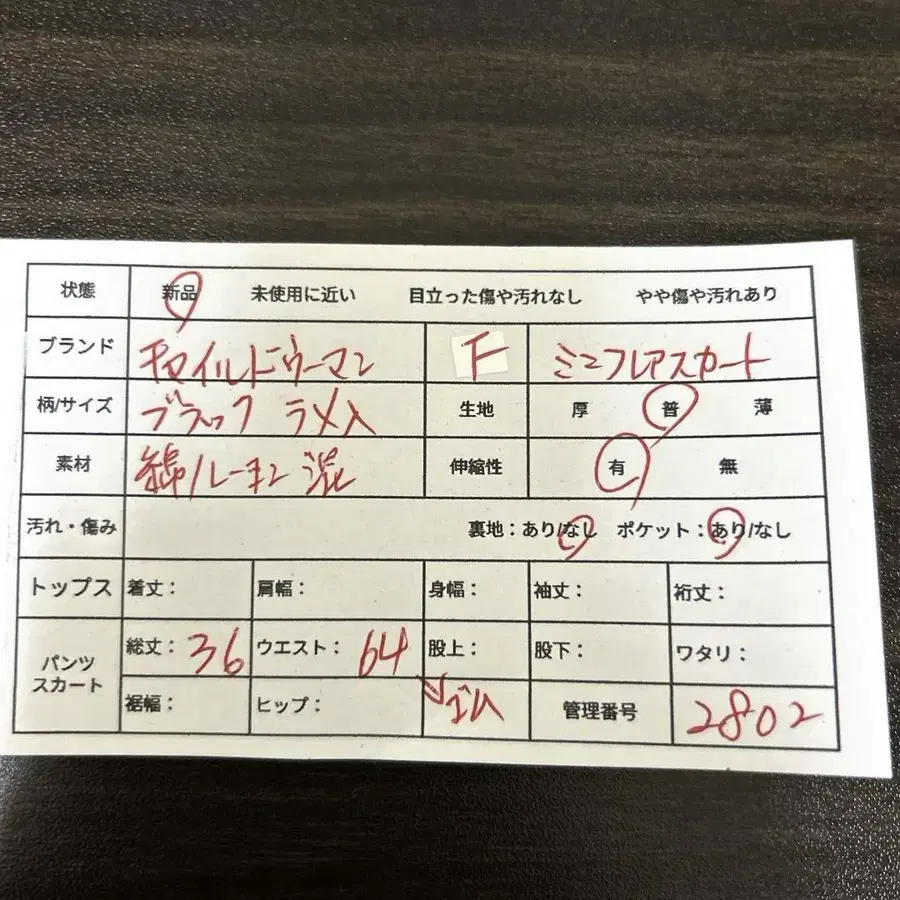 状態 新品 未使用に近い 目立った傷や汚れなし やや傷や汚れあり
ブランド チャイルドウーマン F ミニフレアスカート
柄/サイズ ブラック ラメ入 生地 厚 普 薄
素材 綿/レーヨン 混 伸縮性 有 無
汚れ・傷み 裏地：あり/なし ポケット：あり/なし
トップス 着丈： 肩幅： 身幅： 袖丈： 裄丈：
パンツ スカート 総丈：36 ウエスト：64 股上： 股下： ワタリ：
裾幅： ヒップ： ゴム 管理番号 2802